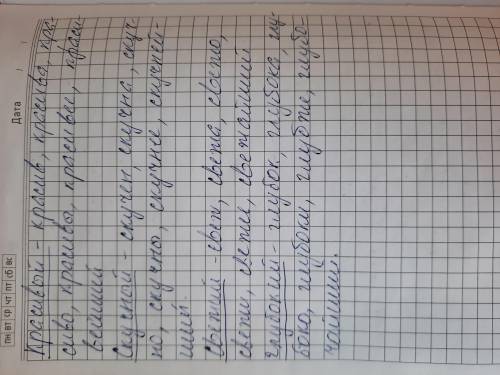 Дата
пн вт ср чт пт сб вс
Красивый - красив, красива, кра-
сиво, красивы, красивее, краси-
вейший
Скучный - скучен, скучна, скуч-
но, скучны, скучнее, скучней-
ший.
Свежий - свеж, свежа, свежо,
свежи, свежее, свежайший
Глубокий - глубок, глубока, глу-
боко, глубоки, глубже, глубо-
чайший.